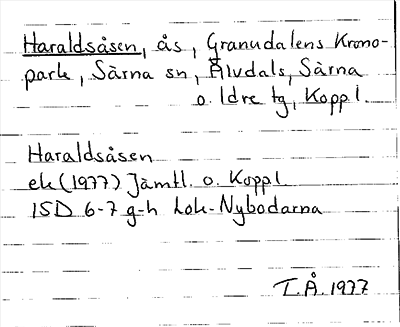 Haraldsåsen, ås, Granudalens Krono-
park, Särna sn, Älvdals, Särna
o. Idre tg, Koppl.
Haraldsåsen
ek (1977) Jämtl. o. Koppl.
ISD 6-7 g-h Lok-Nybodarna
T.Å. 1977